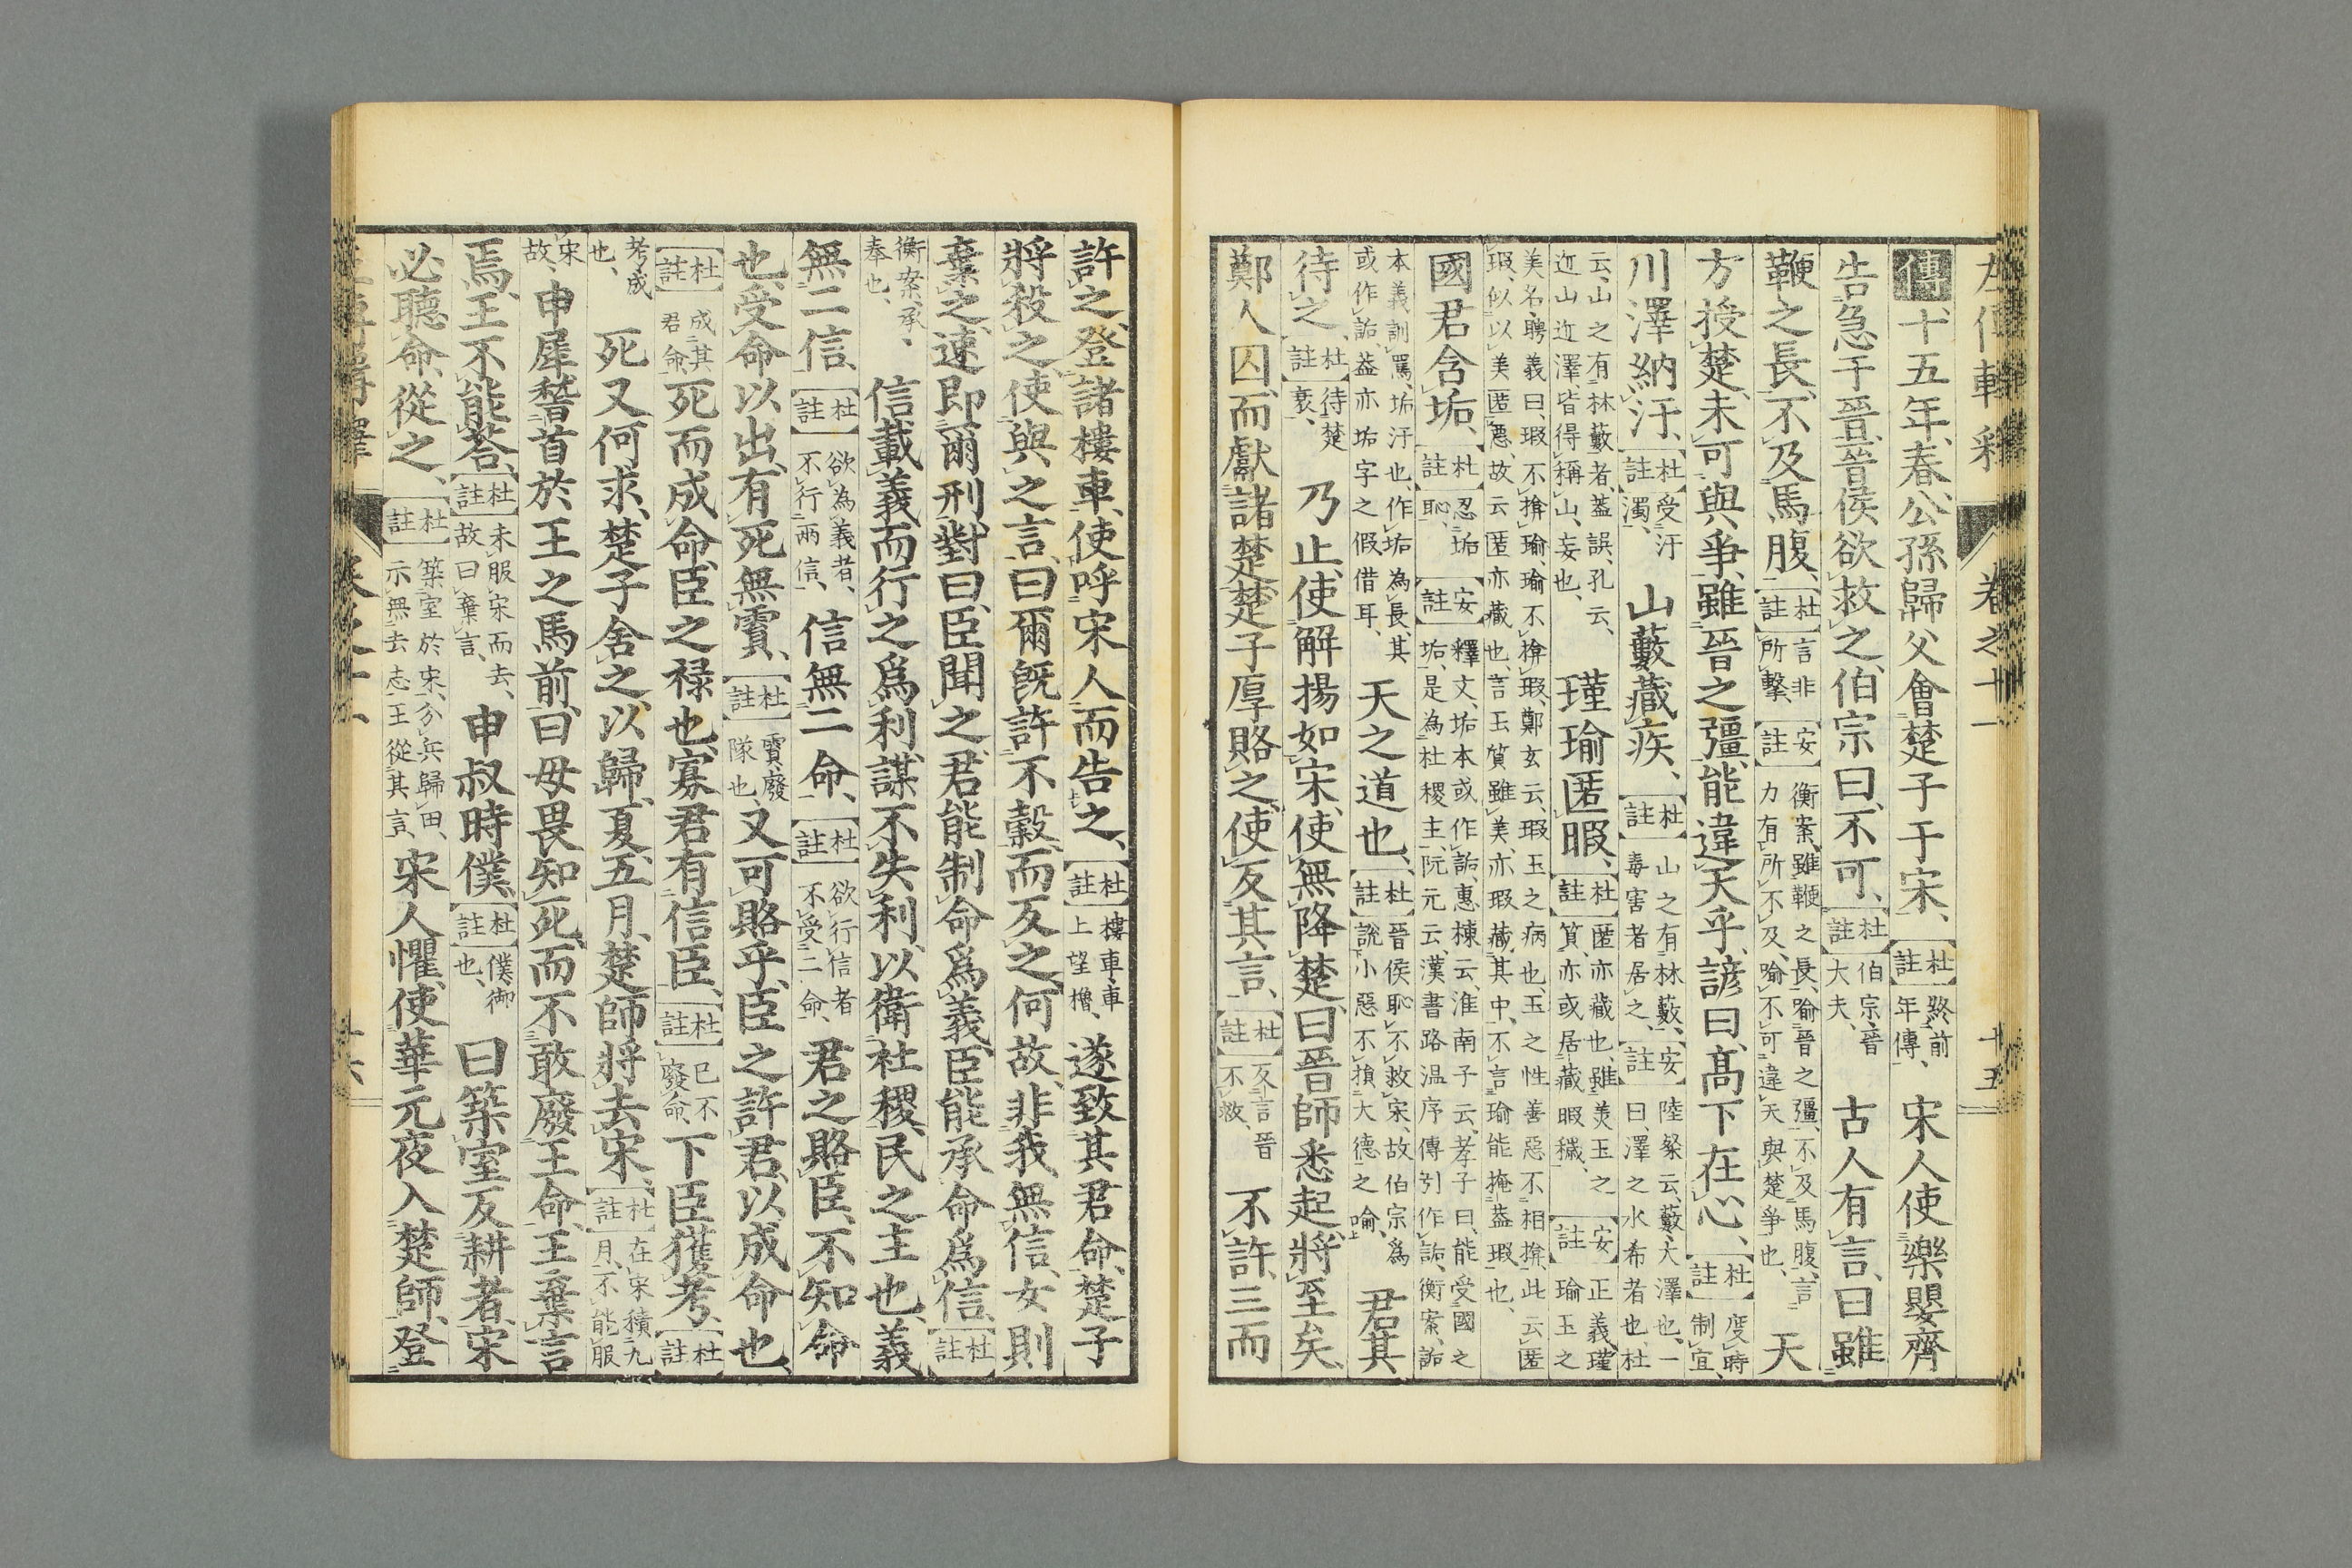 傳十五年、春、公孫歸父會楚子于宋、【杜註】終前年傳、宋人使樂嬰齊
告急于晉、晉侯欲救之、伯宗曰、不可、【杜註】伯宗、晉大夫、古人有言、曰、雖
鞭之長、不及馬腹、【杜註】言非所擊、【安註】衡案、雖鞭之長、喻晉之彊、不及馬腹、言力有所不及、喻不可違天與楚爭也、天
方授楚、未可與爭、雖晉之彊、能違天乎、諺曰、高下在心、【杜註】度時制宜、
川澤納汙、【杜註】受汙濁、山藪藏疾、【杜註】山之有林藪、毒害者居之、【安註】陸粲云、藪、大澤也、一曰、澤之水希者也、杜
云、山之有林藪者、蓋誤、孔云、近山近澤、皆得稱山、妄也、瑾瑜匿暇、【杜註】匿亦藏也、雖美玉之質、亦或居藏暇穢、【安註】正義、瑾瑜玉之
美名、聘義曰、瑕不揜瑜、瑜不揜瑕、鄭玄云、瑕玉之病也、玉之性善惡不相揜、此云匿瑕、似以美匿惡、故云匿亦藏也、言玉質雖美、亦瑕藏其中、不言瑜能掩蓋瑕也、
國君含垢、【杜註】忍垢恥、【安註】釋文、垢本或作詬、惠棟云、淮南子云、老子曰、能受國之垢、是為社稷主、阮元云、漢書路温序傳引作詬、衡案、詬
本義訓罵、垢汙也、作垢為長、其或作詬、蓋亦垢字之假借耳、天之道也、【杜註】晉侯恥不救宋、故伯宗為說小惡不損大德之喻、君其
待之、【杜註】待楚衰、乃止、使解揚如宋、使無降楚、曰晉師悉起、將至矣、
鄭人囚、而獻諸楚、楚子厚賂之、使反其言、【杜註】反言晉不救、不許、三而
左傳輯釋 卷之十一 十五
許之、登諸樓車、使呼宋人而告之、【杜註】樓車、車上望櫓、遂致其君命、楚子
將殺之、使與之言、曰爾既許不穀、而反之何故、非我無信、女則
棄之、速即爾刑、對曰、臣聞之、君能制命爲義、臣能承命爲信、【杜註】
衡案、承奉也、信載義而行之爲利、謀不失利、以衛社稷、民之主也、義
無二信、【杜註】欲為義者、不行兩信、信無二命、【杜註】欲行信者不受二命、君之賂臣、不知命
也、受命以出、有死無霣、【杜註】霣、廢隊也、又可賂乎、臣之許君、以成命也、
【杜註】成其君命、死而成命、臣之禄也、寡君有信臣、【杜註】已不廢命、下臣獲考、【杜註】
考成也、死又何求、楚子舍之、以歸、夏五月、楚師將去宋、【杜註】在宋積九月、不能服
宋故、申犀稽首於王之馬前、曰毋畏知死、而不敢廢王命、王棄言
焉、王不能荅、【杜註】未服宋而去、故曰棄言、申叔時僕、【杜註】僕、御也、曰築室反耕者、宋
必聽命、從之、【杜註】築室於宋、分兵歸田、示無去志、王從其言、宋人懼、使華元夜入楚師、登